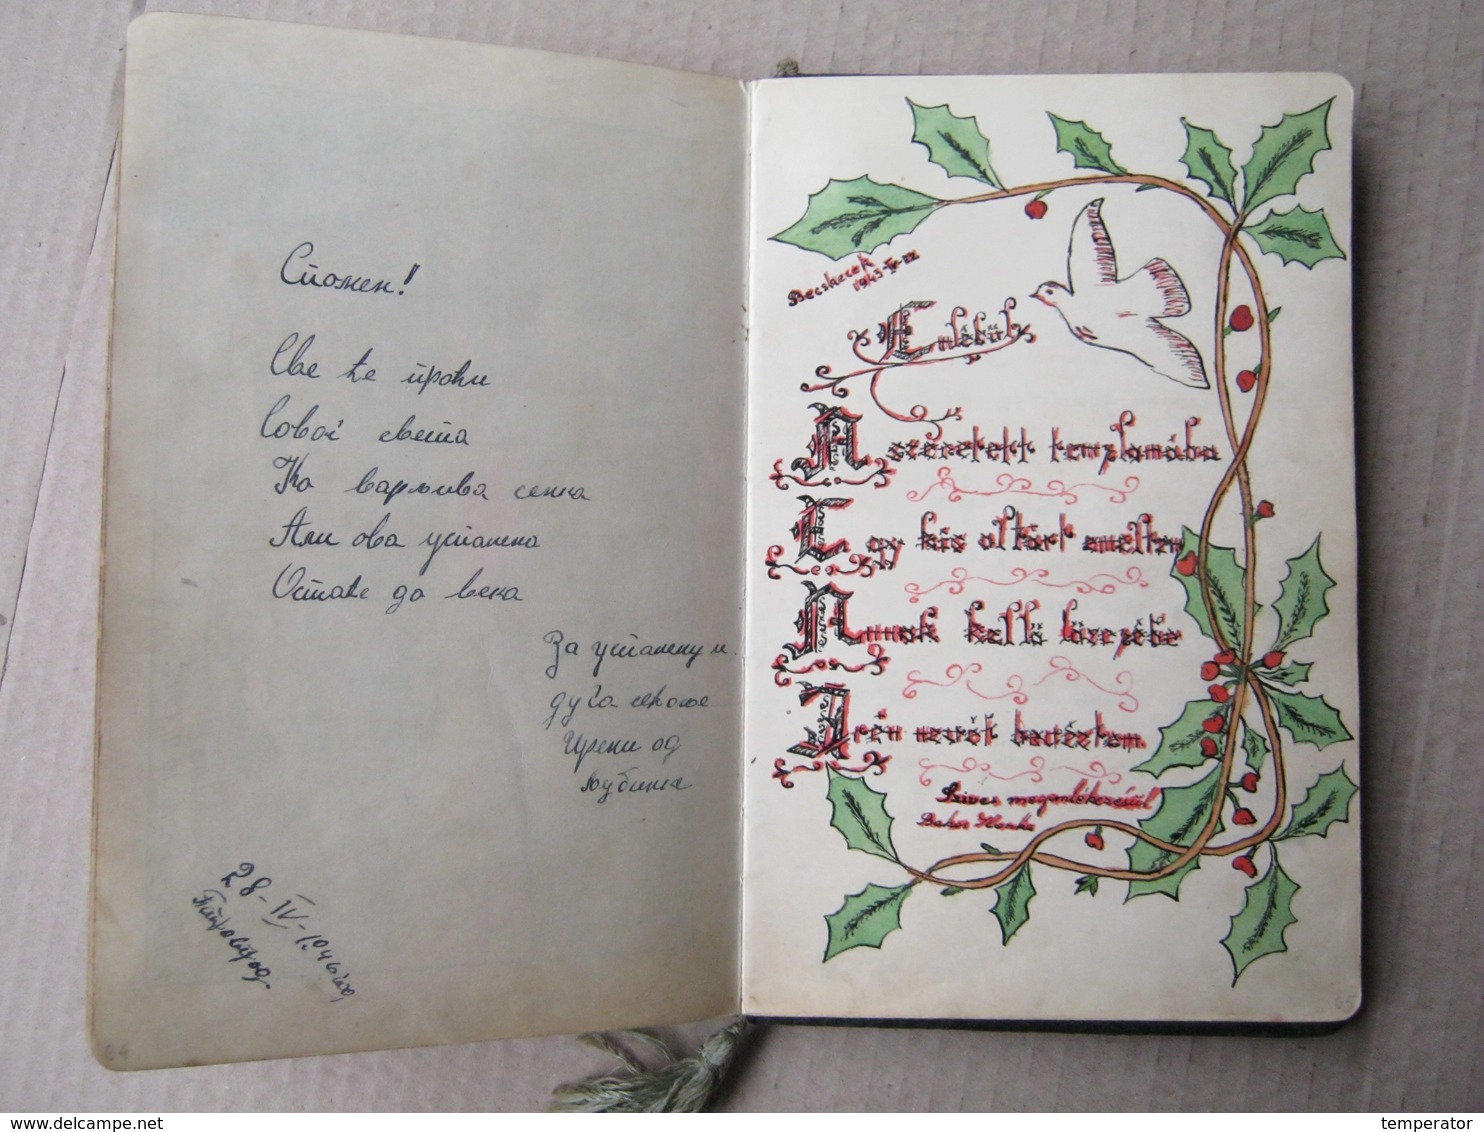 Спомен!
Све ће проћи
Овог света
Ко варљива сенка
Али ова успомена
Остаће до века
За успомену и
дуго сећање
Ирени од
Љубинке
28-IV-1946 год
Петровград.
Becskerek
1943-IV-
Emlékül
A szeretett templomába
Egy kis oltárt emeltem
Annak kellő közepébe
Irén nevét bevéstem.
Szives megemlékezésül
Bakos Ilonka
64
65
delcampe.net
temperator